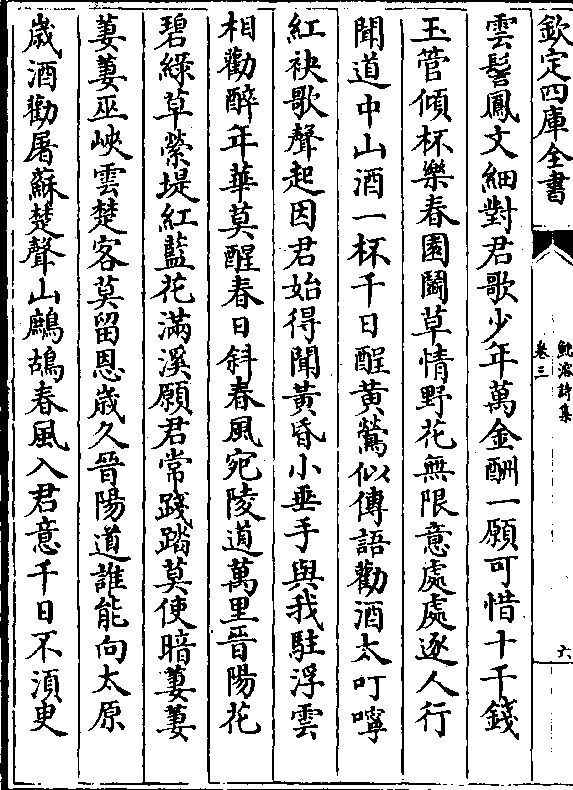 欽定四庫全書
鮑溶詩集
卷三
六
雲髻鳳文細對君歌少年萬金酬一願可惜十千錢
玉管傾杯樂春園鬬草情野花無限意處處逐人行
聞道中山酒一杯千日酲黄鶯似傳語勸酒太叮嚀
紅袂歌聲起因君始得聞黄昏小垂手與我駐浮雲
相勸醉年華莫醒春日斜春風宛陵道萬里晉陽花
碧緑草縈堤紅藍花滿溪願君常踐踏莫使暗萋萋
萋萋巫峽雲楚客莫留恩嵗久晉陽道誰能向太原
嵗酒勸屠蘇楚聲山鷓鴣春風入君意千日不湏臾